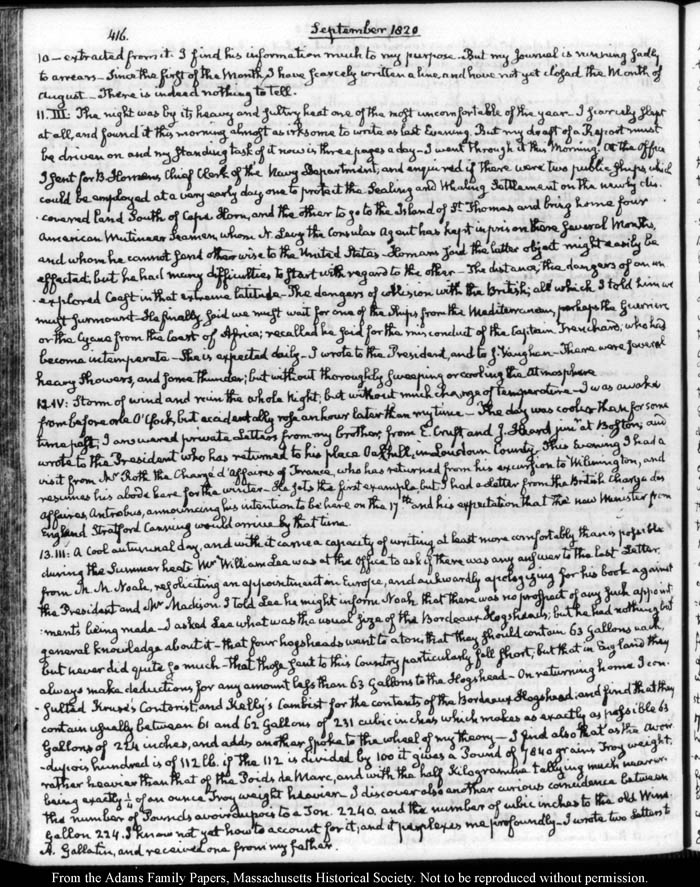 416.
September 1820
10 — extracted from it. I find his information much to my purpose. But my Journal is running sadly
to arrears — Since the first of the Month, I have scarcely written a line, and have not yet closed the Month of
August — There is indeed nothing to tell.
11. III: The night was by its heavy and sultry heat one of the most uncomfortable of the year — I scarcely slept
at all, and found it this morning almost as irksome to write as last Evening. But my draft of a Report must
be driven on and my standing task of it now is three pages a day — I went through it this Morning. At the Office
I sent for B. Homans, Chief Clerk of the Navy Department, and enquired if there were two public Ships which
could be employed at a very early day one to protect the Sealing and Whaling Settlement on the newly dis
-covered Land South of Cape Horn, and the other to go to the Island of St. Thomas and bring home four
American Mutineer Seamen, whom N. Levy the Consular Agent has kept in prison there several Months,
and whom he cannot send otherwise to the United States — Homans said the latter object might easily be
effected; but he had many difficulties to start with regard to the other — The distance, the dangers of an un
explored Coast in that extreme latitude — The dangers of collision with the British; all which I told him we
must surmount — He finally said we must wait for one of the Ships from the Mediterranean, perhaps the Guerriere
or the Cyane from the Coast of Africa; recalled he said for the misconduct of the Captain Trenchard, who had
become intemperate — She is expected daily — I wrote to the President, and to J. Vaughan — There were several
heavy showers, and some thunder; but without thoroughly sweeping or cooling the Atmosphere
12. IV: Storm of wind and rain the whole Night, but without much change of temperature — I was awake
from before one O'Clock, but accidentally rose an hour later than my time — The day was cooler than for some
time past; I answered private Letters from my brother, from E. Cruft and J. Heard junr. at Boston; and
wrote to the President who has returned to his place Oakhill, in Loudoun County. This Evening I had a
visit from Mr. Roth the Chargé d'Affaires of France, who has returned from his excursion to Wilmington, and
resumes his abode here for the winter — He sets the first example, but I had a letter from the British Chargé des
Affaires, Antrobus, announcing his intention to be here on the 17th. and his expectation that the new Minister from
England Stratford Canning would arrive by that time.
13. III: A cool autumnal day, and with it came a capacity of writing at least more comfortably than is possible
during the Summer heats Mr. William Lee was at the Office to ask if there was any answer to the last Letter
from M. M. Noah, resoliciting an appointment in Europe, and awkwardly apologizing for his book against
the President and Mr. Madison. I told Lee he might inform Noah that there was no prospect of any such appoint
-ments being made — I asked Lee what was the usual size of the Bordeaux Hogsheads; but he had nothing but
general knowledge about it — that four hogsheads went to a ton; that they should contain 63 Gallons each,
but never did quite so much — That those sent to this Country particularly fell short, but that in England they
always make deductions for any amount less than 63 Gallons to the Hogshead — On returning home I con
-sulted Kruse's Contorist, and Kelly's Cambist for the contents of the Bordeaux Hogshead; and find that they
contain usually between 61 and 62 Gallons of 231 cubic inches which makes as exactly as possible 63
Gallons of 224 inches, and adds another spoke to the wheel of my theory — I find also that as the Avoir
-dupois hundred is of 112 lb. if the 112 is divided by 100 it gives a Pound of 7840 grains Troy weight,
rather heavier than that of the Poids de Marc, and with the half Kilogramme tallying much nearer.
being exactly ¼ of an ounce Troy weight heavier — I discover also another curious coincidence between
the number of Pounds avoirdupois to a Ton. 2240. and the number of cubic inches to the old Wine
Gallon 224. I know not yet how to account for it, and it perplexes me profoundly — I wrote two Letters to
A. Gallatin, and received one from my father.
From the Adams Family Papers, Massachusetts Historical Society. Not to be reproduced without permission.